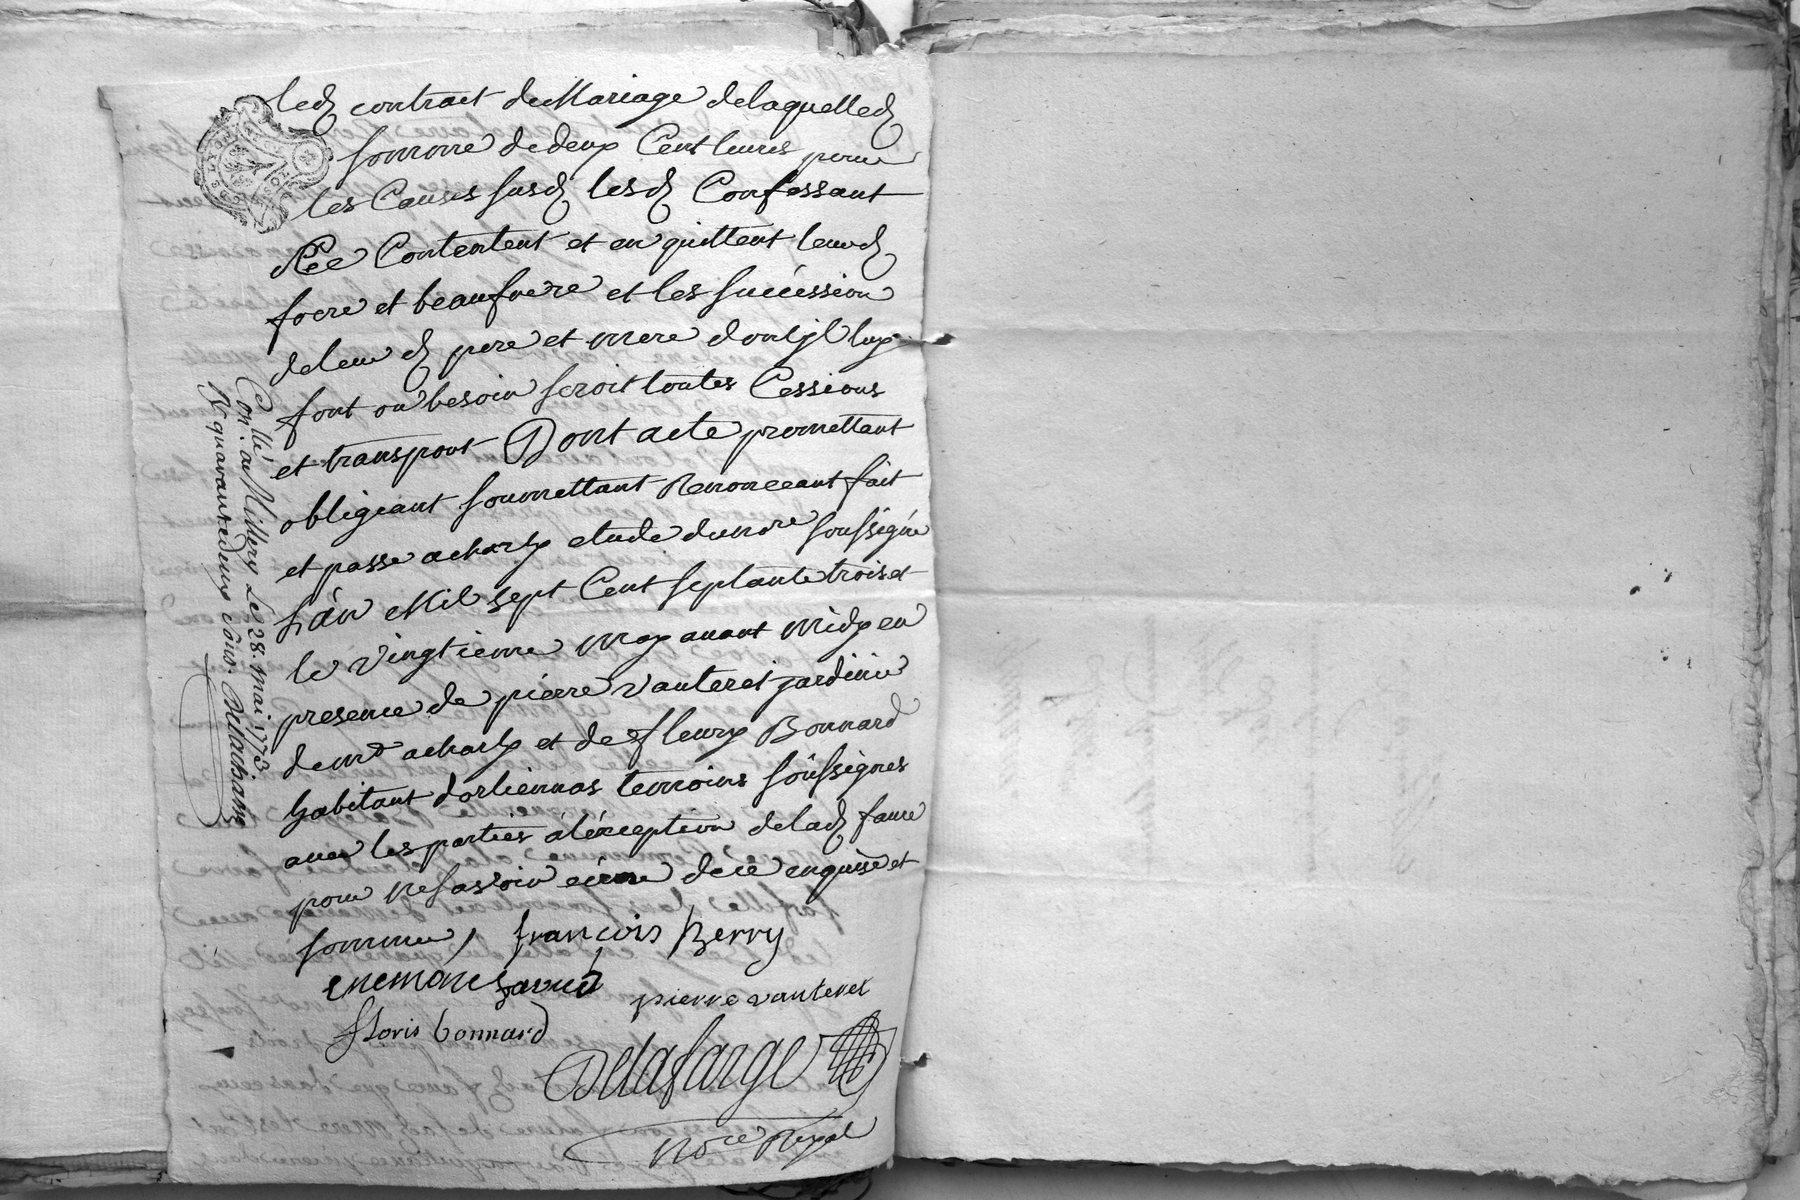 led contract de Mariage de laquelle d
somme de deux Cent livres pour
les Causes susd lesd Confessant
Contentent et en quittent leurd
frere et beaufrere et les succession
de leur d pere et mere dont jl luy
font ou besoin seroit toutes Cessions
et transport Dont acte promettant
obligeant soumettant Renonceant fait
et passé a charly etude du nore soussigné
L'an Mil sept Cent septante trois et
le vingtieme may avant midy en
presence de pierre vauteret jardinier
demt a charly et de fleury Bonnard
habitant d'orliennas temoins soussignes
avec les parties a l'exception de lad faure
pour ne savoir ecrire de ce enquise et
sommée, françois Berry
enemond
pierre vauteret
floris bonnard
Delafarge
Nore Royal
Conllé. au Millery Le 28. mai 1773
R. quarante deux sous.